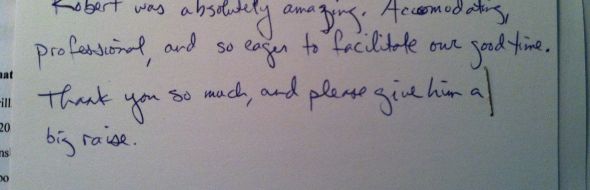 Robert was absolutely amazing. Accomodating,
professional, and so eager to facilitate our good time.
Thank you so much, and please give him a
big raise.
nat
ill
20
ns
00